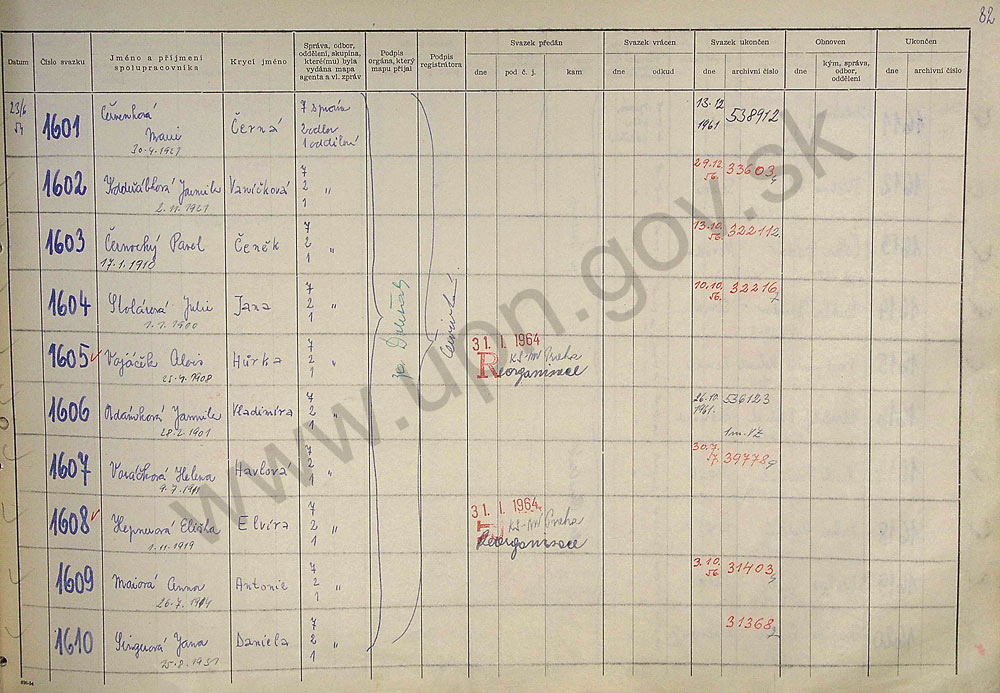 82
Datum
Číslo svazku
Jméno a příjmení
spolupracovníka
Krycí jméno
Správa, odbor,
oddělení, skupina,
které(mu) byla
vydána mapa
agenta a vl. zpráv
Podpis
orgána, který
mapu přijal
Podpis
registrátora
Svazek předán
dne
pod č. j.
kam
Svazek vrácen
dne
odkud
Svazek ukončen
dne
archivní číslo
Obnoven
dne
kým, správa,
odbor,
oddělení
Ukončen
dne
archivní číslo
23/6
54
1601
30.4.1921
Černá
7 správa
2 odbor
1 oddělení
13.12
1961
538912
1602
Jarmila
2.11.1921
Vaníčková
7
2 "
1
29.12.
56.
33603
1603
Černocký Pavel
17.1.1910
Čeněk
7
2 "
1
13.10.
56.
322112
1604
Stolárová Julie
1.1.1900
Jana
7
2 "
1
10.10.
56.
32216
1605
Vojáček Alois
25.4.1908
Hůrka
7
2 "
1
31. I. 1964
KS-MV Praha
Reorganisace
1606
Adámková Jarmila
28.2.1901
Vladimíra
7
2 "
1
26.10.
1961.
536123
1607
Voráčková Helena
9.7.1911
Havlová
7
2 "
1
30.7.
57.
39778
1608
Hepnerová Eliška
1.11.1919
Elvíra
7
2 "
1
31. I. 1964
KS-MV Praha
Reorganisace
1609
Maiorová Anna
26.7.1914
Antonie
7
2 "
1
3.10.
56.
31403
1610
Jana
25.8.1931
Daniela
7
2 "
1
31368
www.upn.gov.sk